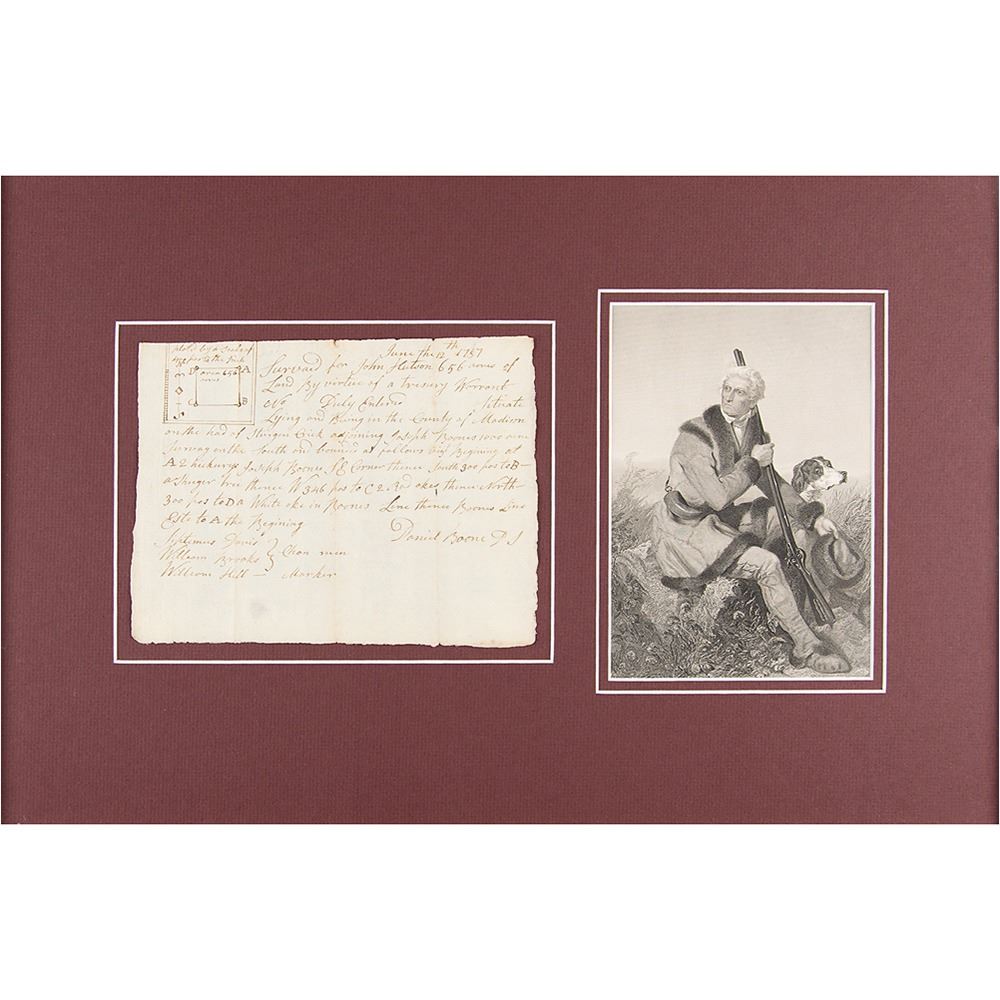 plotd by a Scale of
100 pos to the Inch
D A
area 656
acres
C B
June the 12th 1787
Survaid for John Hutson 656 acres of
Land By virtue of a tresery Warrant
No Duly Entered Situate
Lying and Being in the County of Madison
on the had of Sturgen Crick adjoining Joseph Boones 1000 acre
Survay on the South and bounded as follows viz Begining at
A 2 hickurys Joseph Boones S E Corner thence South 300 pos to B
a Shuger tree thence W 346 pos to C 2 Rad okes thence North
300 pos to D a White oke in Boones Line thence Boones Line
Este to A the Begining
Septemus Davis
William Brooks } Chan men
William Hill — Marker
Daniel Boone D S